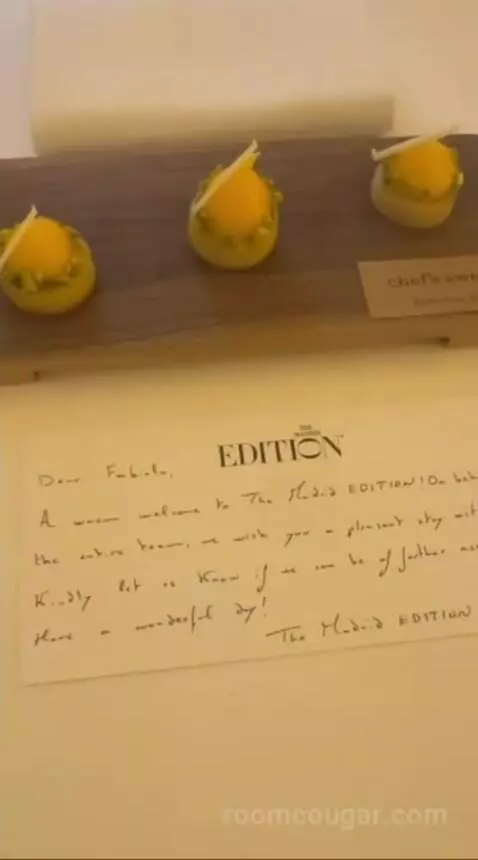 chef's
THE
MADRID
EDITION
Dear Fabiola,
A warm welcome to The Madrid EDITION! On
the entire team, we wish you a pleasant stay
Kindly let us know if we can be of further
Have a wonderful day!
The Madrid EDITION
roomcougar.com